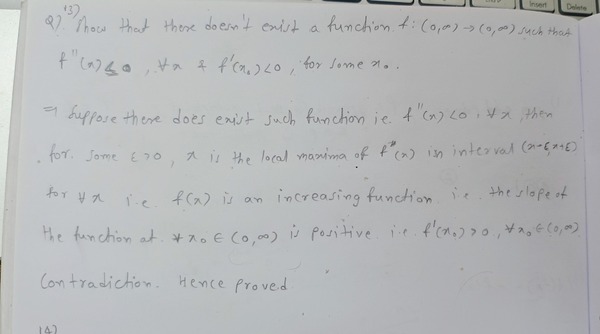 Insert
Delete
13)
Q) Show that there doesn't exist a function f: (0,∞) → (0,∞) such that
f''(x) ≤ 0, ∀x & f'(x₀) < 0, for some x₀.
⇒ Suppose there does exist such function i.e. f''(x) < 0, ∀x, then
for some ε > 0, x is the local maxima of f''(x) in interval (x-ε, x+ε)
for ∀x i.e f(x) is an increasing function i.e. the slope of
the function at ∀x₀ ∈ (0,∞) is positive i.e. f'(x₀) > 0, ∀x₀ ∈ (0,∞)
Contradiction. Hence proved
14)